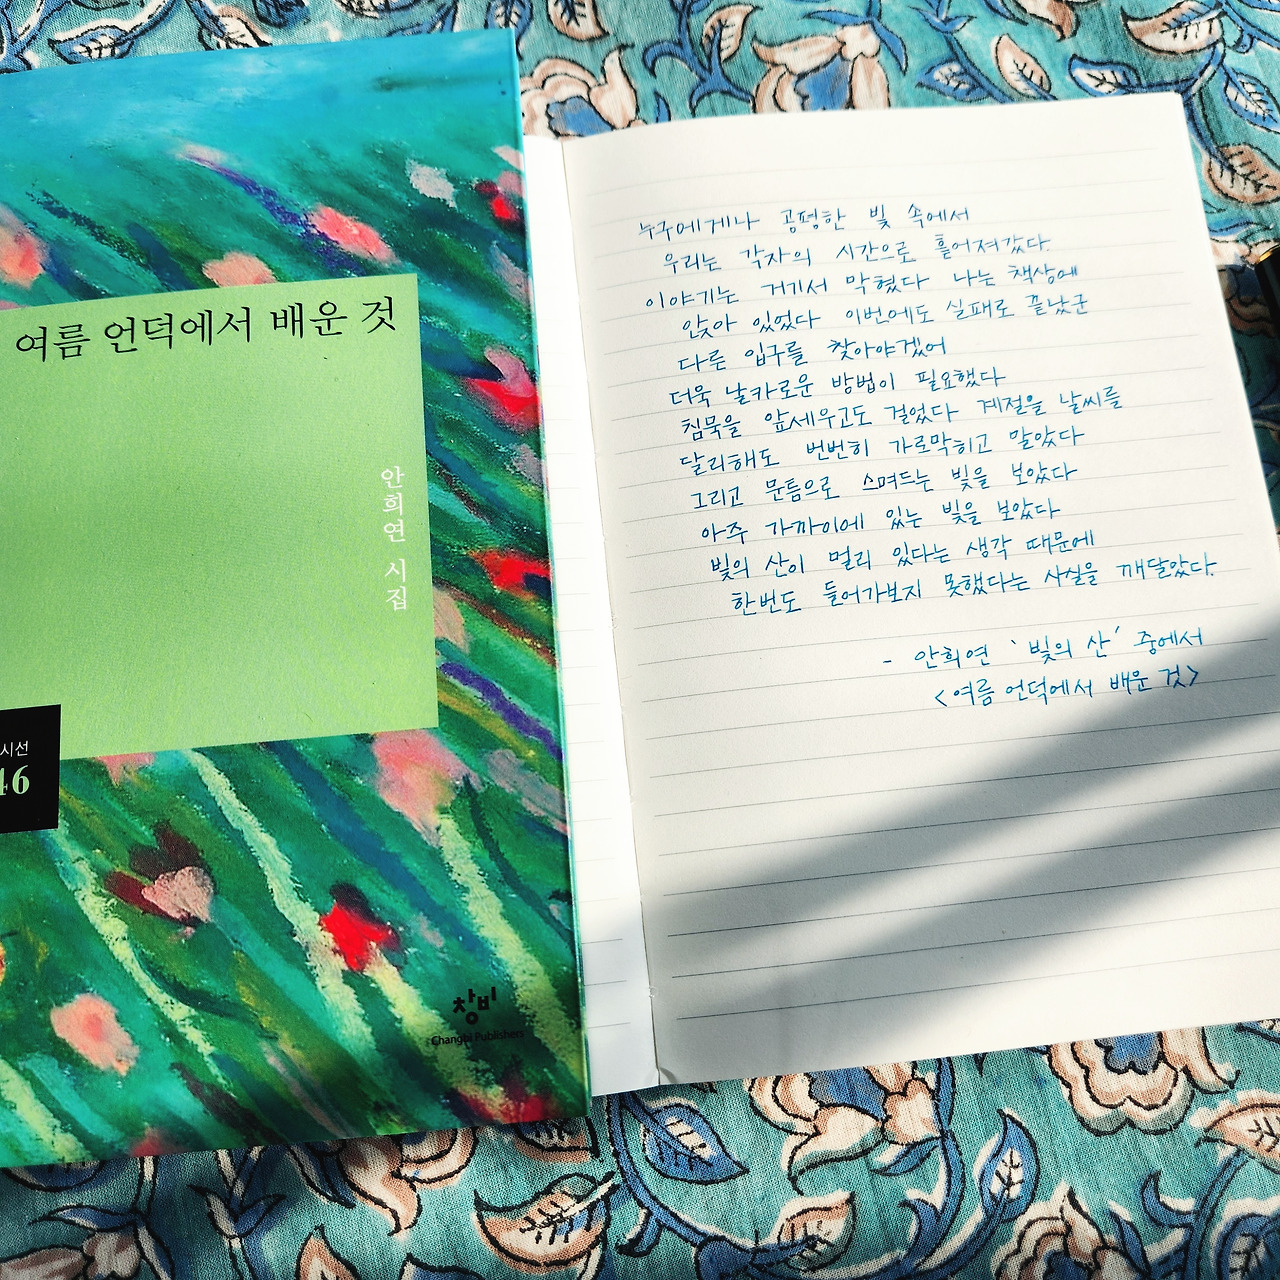 여름 언덕에서 배운 것
안희연 시집
시선
46
창비
Changbi Publishers
누구에게나 공평한 빛 속에서
우리는 각자의 시간으로 흩어져갔다.
이야기는 거기서 막혔다 나는 책상에
앉아 있었다 이번에도 실패로 끝났군
다른 입구를 찾아야겠어
더욱 날카로운 방법이 필요했다
침묵을 앞세우고도 걸었다 계절을 날씨를
달리해도 번번히 가로막히고 말았다
그리고 문틈으로 스며드는 빛을 보았다
아주 가까이에 있는 빛을 보았다
빛의 산이 멀리 있다는 생각 때문에
한번도 들어가보지 못했다는 사실을 깨달았다.
- 안희연 '빛의 산' 중에서
<여름 언덕에서 배운 것>